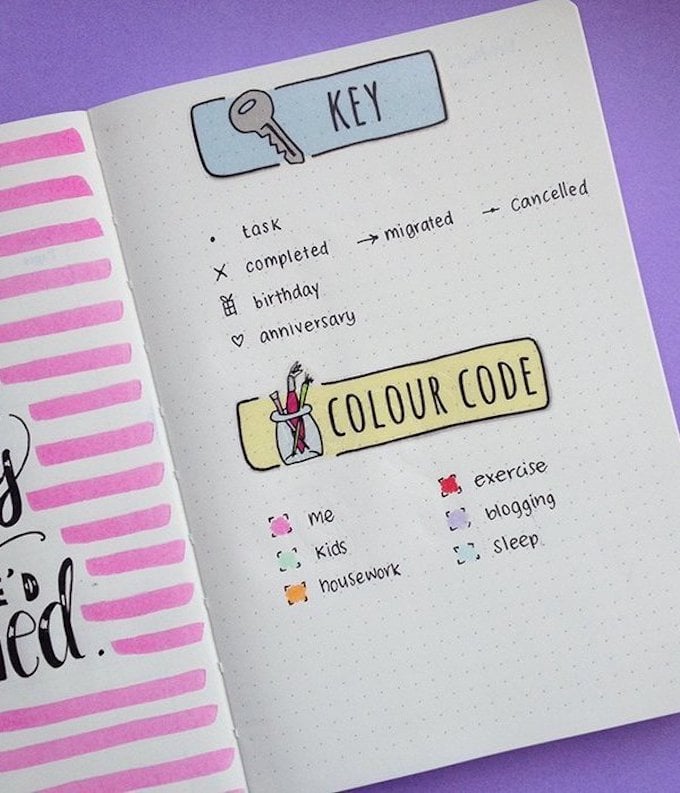 KEY
• task
x completed → migrated – cancelled
birthday
♡ anniversary
COLOUR CODE
me
kids
housework
exercise
blogging
sleep